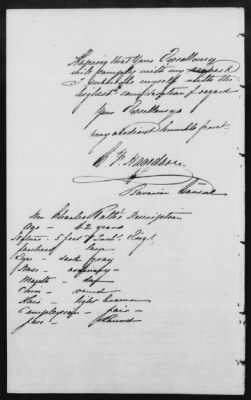 Hoping that Your Excellency
will comply with my request
I subscribe myself with the
highest consideration & regard
Your Excellency's
very obedient humble servt
Bavarian Consul
Mr Charles Description
Age — 62 years
5 feet Engl.
forehead — large
Eyes — dark gray
Nose — ordinary
Mouth — do
Chin — round
Hair — light brown
Complexion — fair
face — round